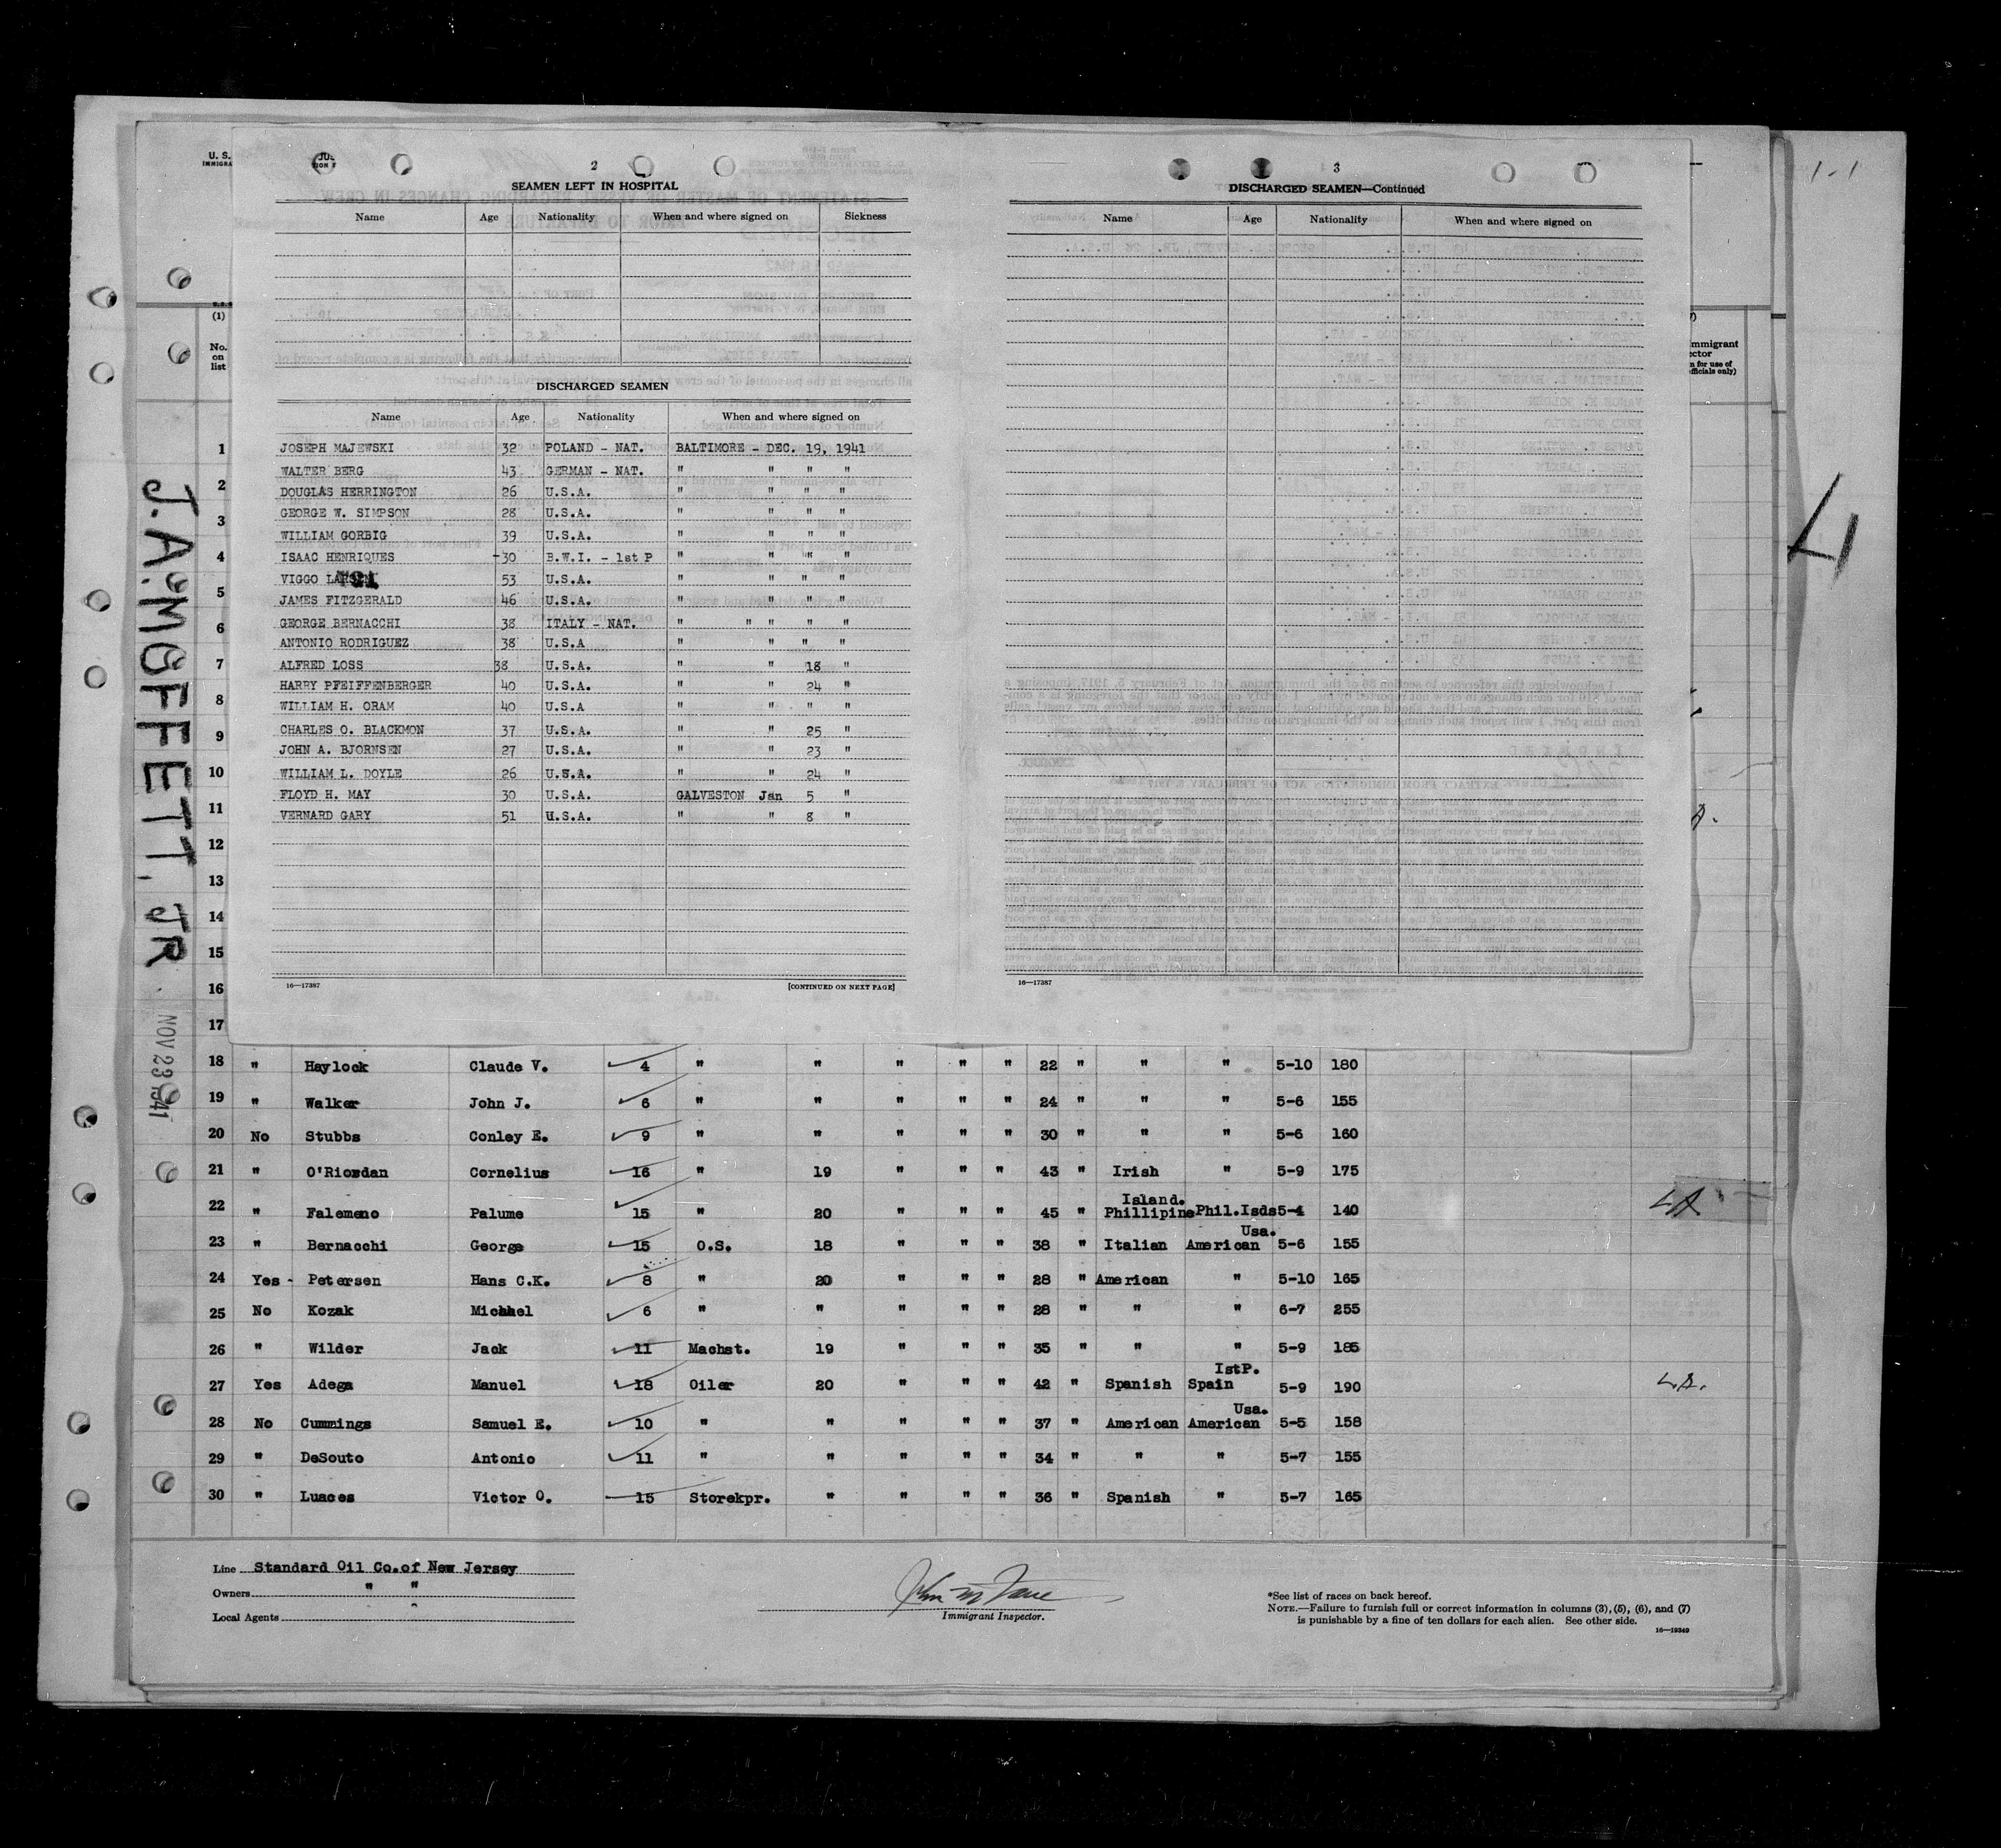 U. S.
IMMIGRA
2
SEAMEN LEFT IN HOSPITAL
Name Age Nationality When and where signed on Sickness
DISCHARGED SEAMEN
Name Age Nationality When and where signed on
JOSEPH MAJEWSKI 32 POLAND - NAT. BALTIMORE - DEC. 19, 1941
WALTER BERG 43 GERMAN - NAT. " " " "
DOUGLAS HERRINGTON 26 U.S.A. " " " "
GEORGE W. SIMPSON 28 U.S.A. " " " "
WILLIAM GORBIG 39 U.S.A. " " " "
ISAAC HENRIQUES -30 B.W.I. - 1st P " " " "
VIGGO 53 U.S.A. " " " "
JAMES FITZGERALD 46 U.S.A. " " " "
GEORGE BERNACCHI 38 ITALY - NAT. " " " " "
ANTONIO RODRIGUEZ 38 U.S.A " " " "
ALFRED LOSS 38 U.S.A. " " 18 "
HARRY PFEIFFENBERGER 40 U.S.A. " " 24 "
WILLIAM H. ORAM 40 U.S.A " " " "
CHARLES O. BLACKMON 37 U.S.A. " " 25 "
JOHN A. BJORNSEN 27 U.S.A. " " 23 "
WILLIAM L. DOYLE 26 U.S.A. " " 24 "
FLOYD H. MAY 30 U.S.A. GALVESTON Jan 5 "
VERNARD GARY 51 U.S.A. " " 8 "
16—17387 [CONTINUED ON NEXT PAGE]
3
DISCHARGED SEAMEN—Continued
Name Age Nationality When and where signed on
16—17387
1-1
4
J.A. MOFFETT, JR
NOV 23 1941
(1)
No.
on
list
mmigrant
ector
n for use of
officials only)
1
2
3
4
5
6
7
8
9
10
11
12
13
14
15
16
17
18 " Haylock Claude V. 4 " " " " " 22 " " " 5-10 180
19 " Walker John J. 6 " " " " " 24 " " " 5-6 155
20 No Stubbs Conley E. 9 " " " " " 30 " " " 5-6 160
21 " O'Riordan Cornelius 16 " 19 " " " 43 " Irish " 5-9 175
22 " Falemeno Palume 15 " 20 " " " 45 " Island. Phillipine Phil.Isds 5-4 140 LA
23 " Bernacchi George 15 O.S. 18 " " " 38 " Italian American Usa. 5-6 155
24 Yes - Petersen Hans C.K. 8 " 20 " " " 28 " American " 5-10 165
25 No Kozak Michael 6 " " " " " 28 " " " 6-7 255
26 " Wilder Jack 11 Machst. 19 " " " 35 " " " 5-9 185
27 Yes Adega Manuel 18 Oiler 20 " " " 42 " Spanish Spain IstP. 5-9 190 LA.
28 No Cummings Samuel E. 10 " " " " " 37 " American American Usa. 5-5 158
29 " DeSouto Antonio 11 " " " " " 34 " " " 5-7 155
30 " Luaces Victor O. 15 Storekpr. " " " " 36 " Spanish " 5-7 165
Line Standard Oil Co.of New Jersey
Owners " "
Local Agents "
Immigrant Inspector.
*See list of races on back hereof.
NOTE.—Failure to furnish full or correct information in columns (3), (5), (6), and (7)
is punishable by a fine of ten dollars for each alien. See other side.
16—19349